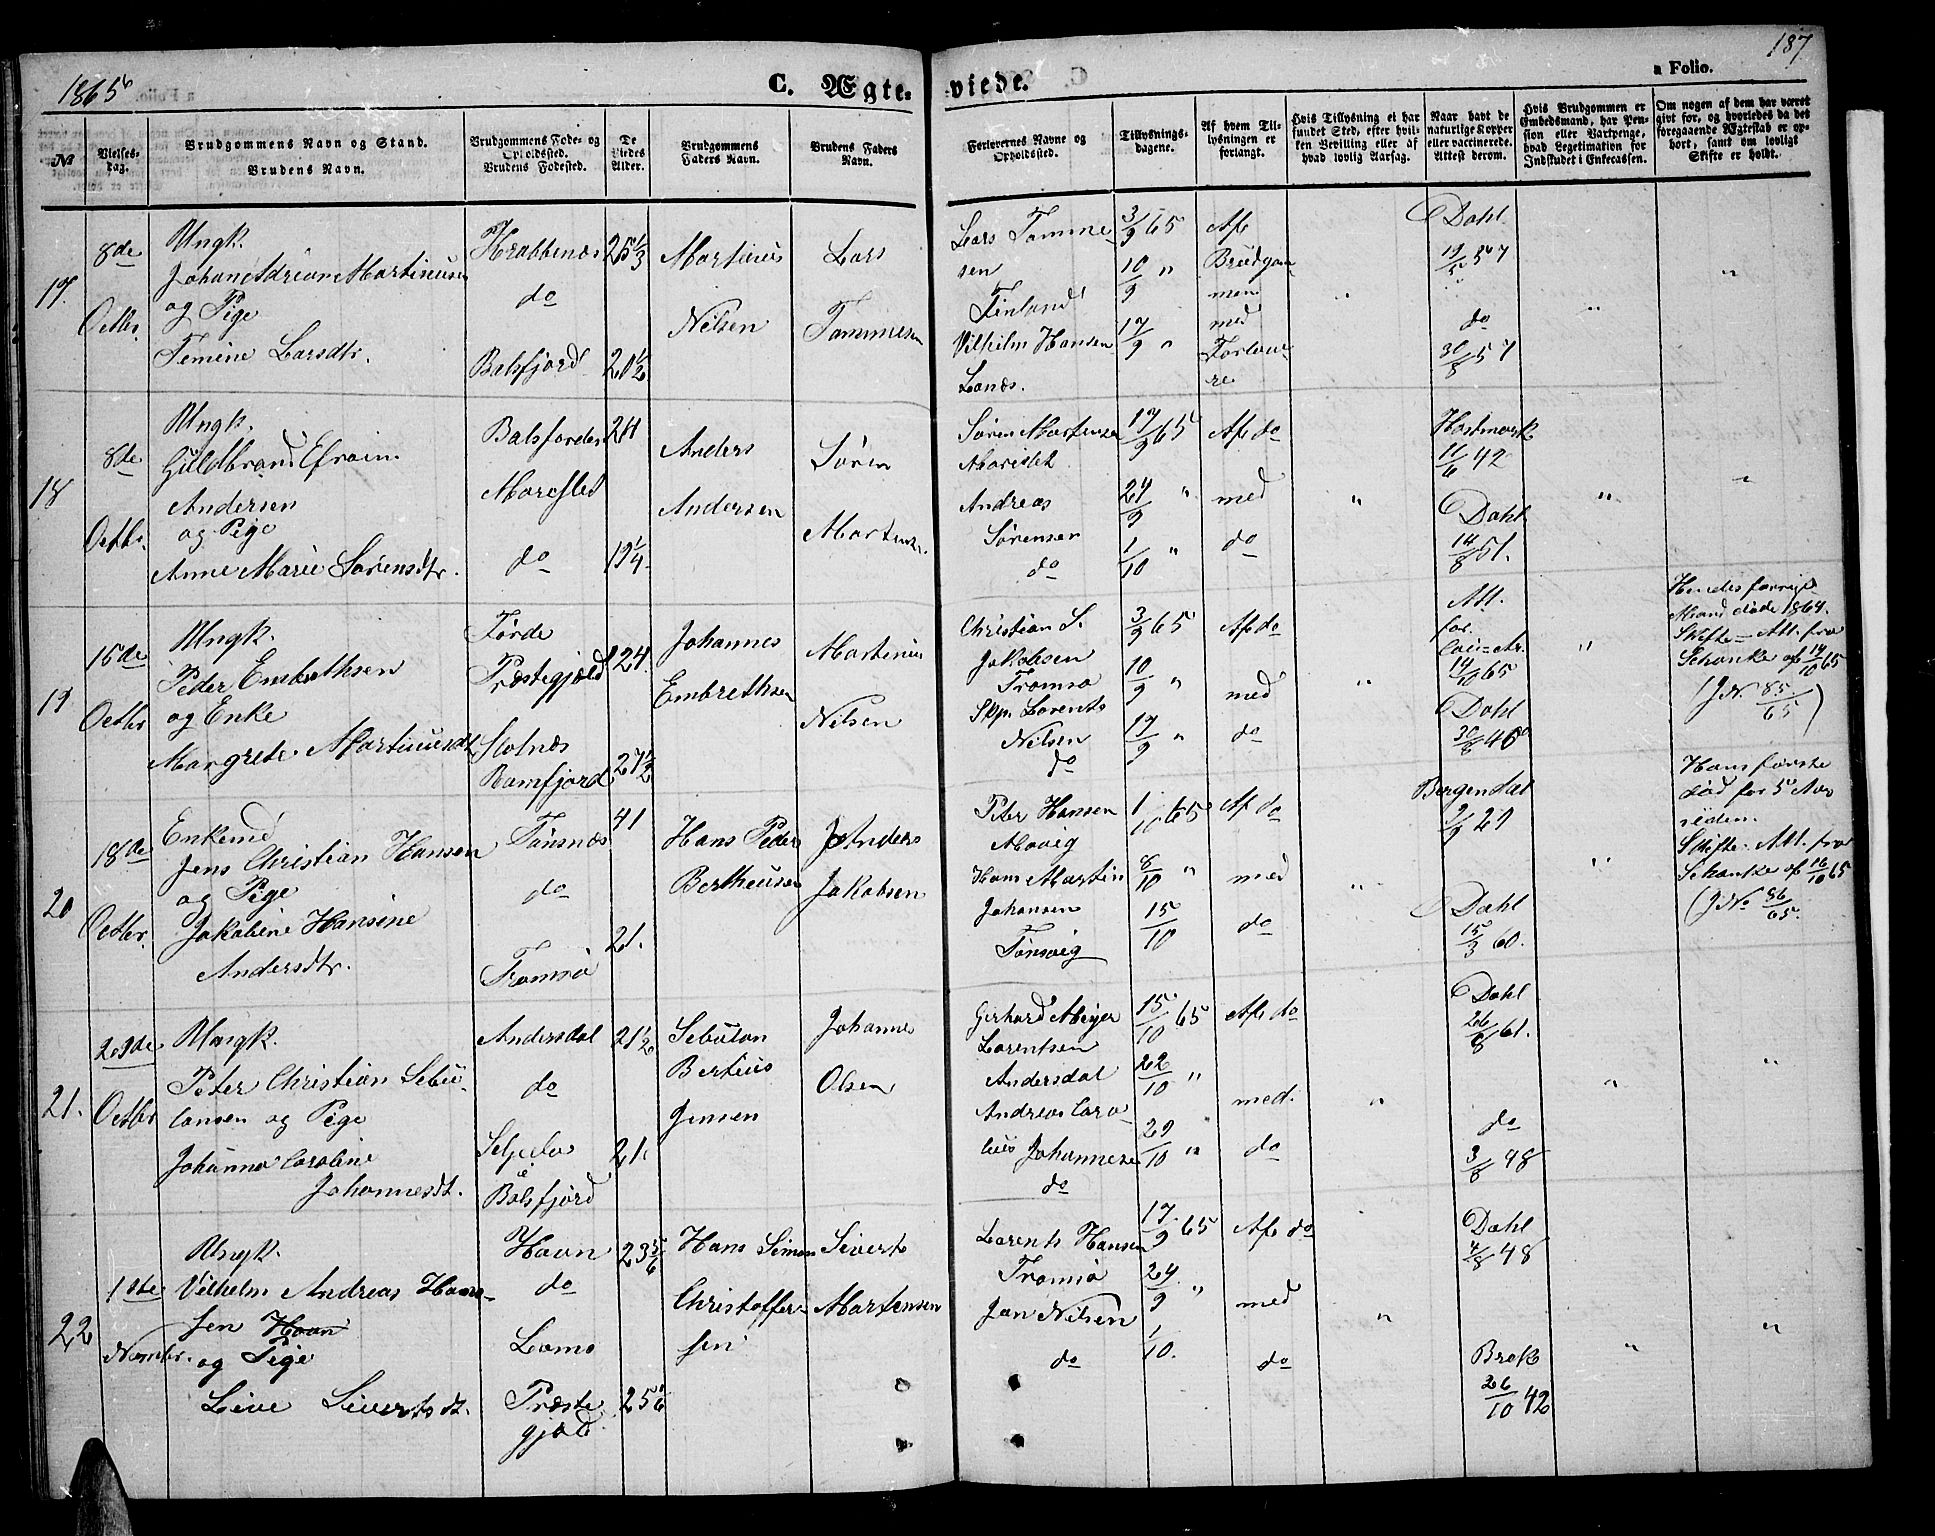 1865
C. Ægteviede.
a Folio. 187
No
Vielses-dag.
Brudgommens Navn og Stand.
Brudens Navn.
Brudgommens Føde- og Opholdssted.
Brudens Fødested.
De Viedes Alder.
Brudgommens Faders Navn.
Brudens Faders Navn.
Forlovernes Navne og Opholdssted.
Tillysnings-dagene.
Af hvem Tillysningen er forlangt.
Hvis Tillysning ei har fundet Sted, efter hvilken Bevilling eller af hvad lovlig Aarsag.
Naar havt de naturlige Kopper eller vaccinerede. Attest derom.
Hvis Brudgommen er Embedsmand, har Pension eller Vartpenge, hvad Legitimation for Indskudet i Enkecassen.
Om nogen af dem har været gift før, og hvorledes da det foregaaende Ægteskab er ophørt, samt om lovligt Skifte er holdt.
17.
8de
Octbr.
Ungk.
Johan Adrian Martinusen
og Pige
Femine Larsdtr.
Krabbenæs
do
Balsfjord
25 1/3
20 1/2
Martinus
Nilsen
Lars
Tommesen
Lars Tomme
sen
Finland
Vilhelm Hansen
Lanæs.
3/9 65
10/9 "
17/9 "
Af
Brudgom
men
med
Forlove
re
"
Dahl
19/5 57
do
30/8 57
"
"
18
8de
Octbr.
Ungk.
Guldbrand Efraim
Andersen
og Pige
Anne Marie Sørensdtr.
Balsfjorden
Maresletd
do
24
19 1/4
Anders
Andersen
Søren
Martens.
Søren Martensen
Marislet
Andreas
Sørensen
do
17/9 65
24/9 "
1/10 "
Af do
med
do
"
Hartmark
11/6 42
Dahl
14/8 51.
"
"
19
15de
Octbr
Ungk.
Peder Embrethsen
og Enke
Margrete Martinusdtr
Førde
Præstegjæld
Stolnæs
Ramfjord
24.
27 1/2
Johannes
Embrethsen
Martinus
Nilsen
Christian S.
Jakobsen
Tromsø
Skpr. Lorents
Nilsen
do
3/9 65
10/9 "
17/9 "
Af do
med
do
"
Att.
for.
14/10 65
Dahl
30/8 40
"
Hendes forrige
Mand døde 1864.
Skifte-Att. fra
Schanke af 14/10 65
(J.No 85/65)
20
18de
Octbr.
Enkemd
Jens Christian Hansen
og Pige
Jakobine Hansine
Andersdtr.
Tønsnæs
do
Tromsø
41
21.
Hans Peder
Bertheusen
Anders
Jakobsen
Peter Hansen
Movig
Hans Martin
Johansen
Tønsvig
1/10 65
8/10 "
15/10
Af do
med
do
"
Bergendal
2/9 29
Dahl
15/3 60.
"
Hans første
død for 5 Aar
siden.
Skifte-Att. fra
Schanke af 16/10 65
(J.No 86/65.
21.
29de
Octbr
Ungk.
Peter Christian Sebu-
lonsen og Pige
Johanna Caroline
Johannesdt.
Andersdal
do
Seljelv
i
Balsfjord
21 1/2
21.
Sebulon
Bertius
Jensen
Johanne
Olsen
Gerhard Meyer
Lorentsen
Andersdal
Andreas Caro-
lius Johannesen
do
15/10 65
22/10 "
29/10 "
Af do
med.
do
"
Dahl
26/8 61.
do
3/8 48
"
"
22
1ste
Novmbr.
Ungk.
Vilhelm Andreas Han-
sen Havn
og Pige
Live Sivertsdt.
Havn
do
Loms
Præste
gjæld.
23 5/6
25 1/6
Hans Simon
Christoffer-
sen
Siverts
Martensen
Lorents Hansen
Tromsø
Jan Nilsen
do
17/9 65
24/9 "
1/10.
Af do
med
do
"
Dahl
4/8 48
Brok
26/10 42
"
"